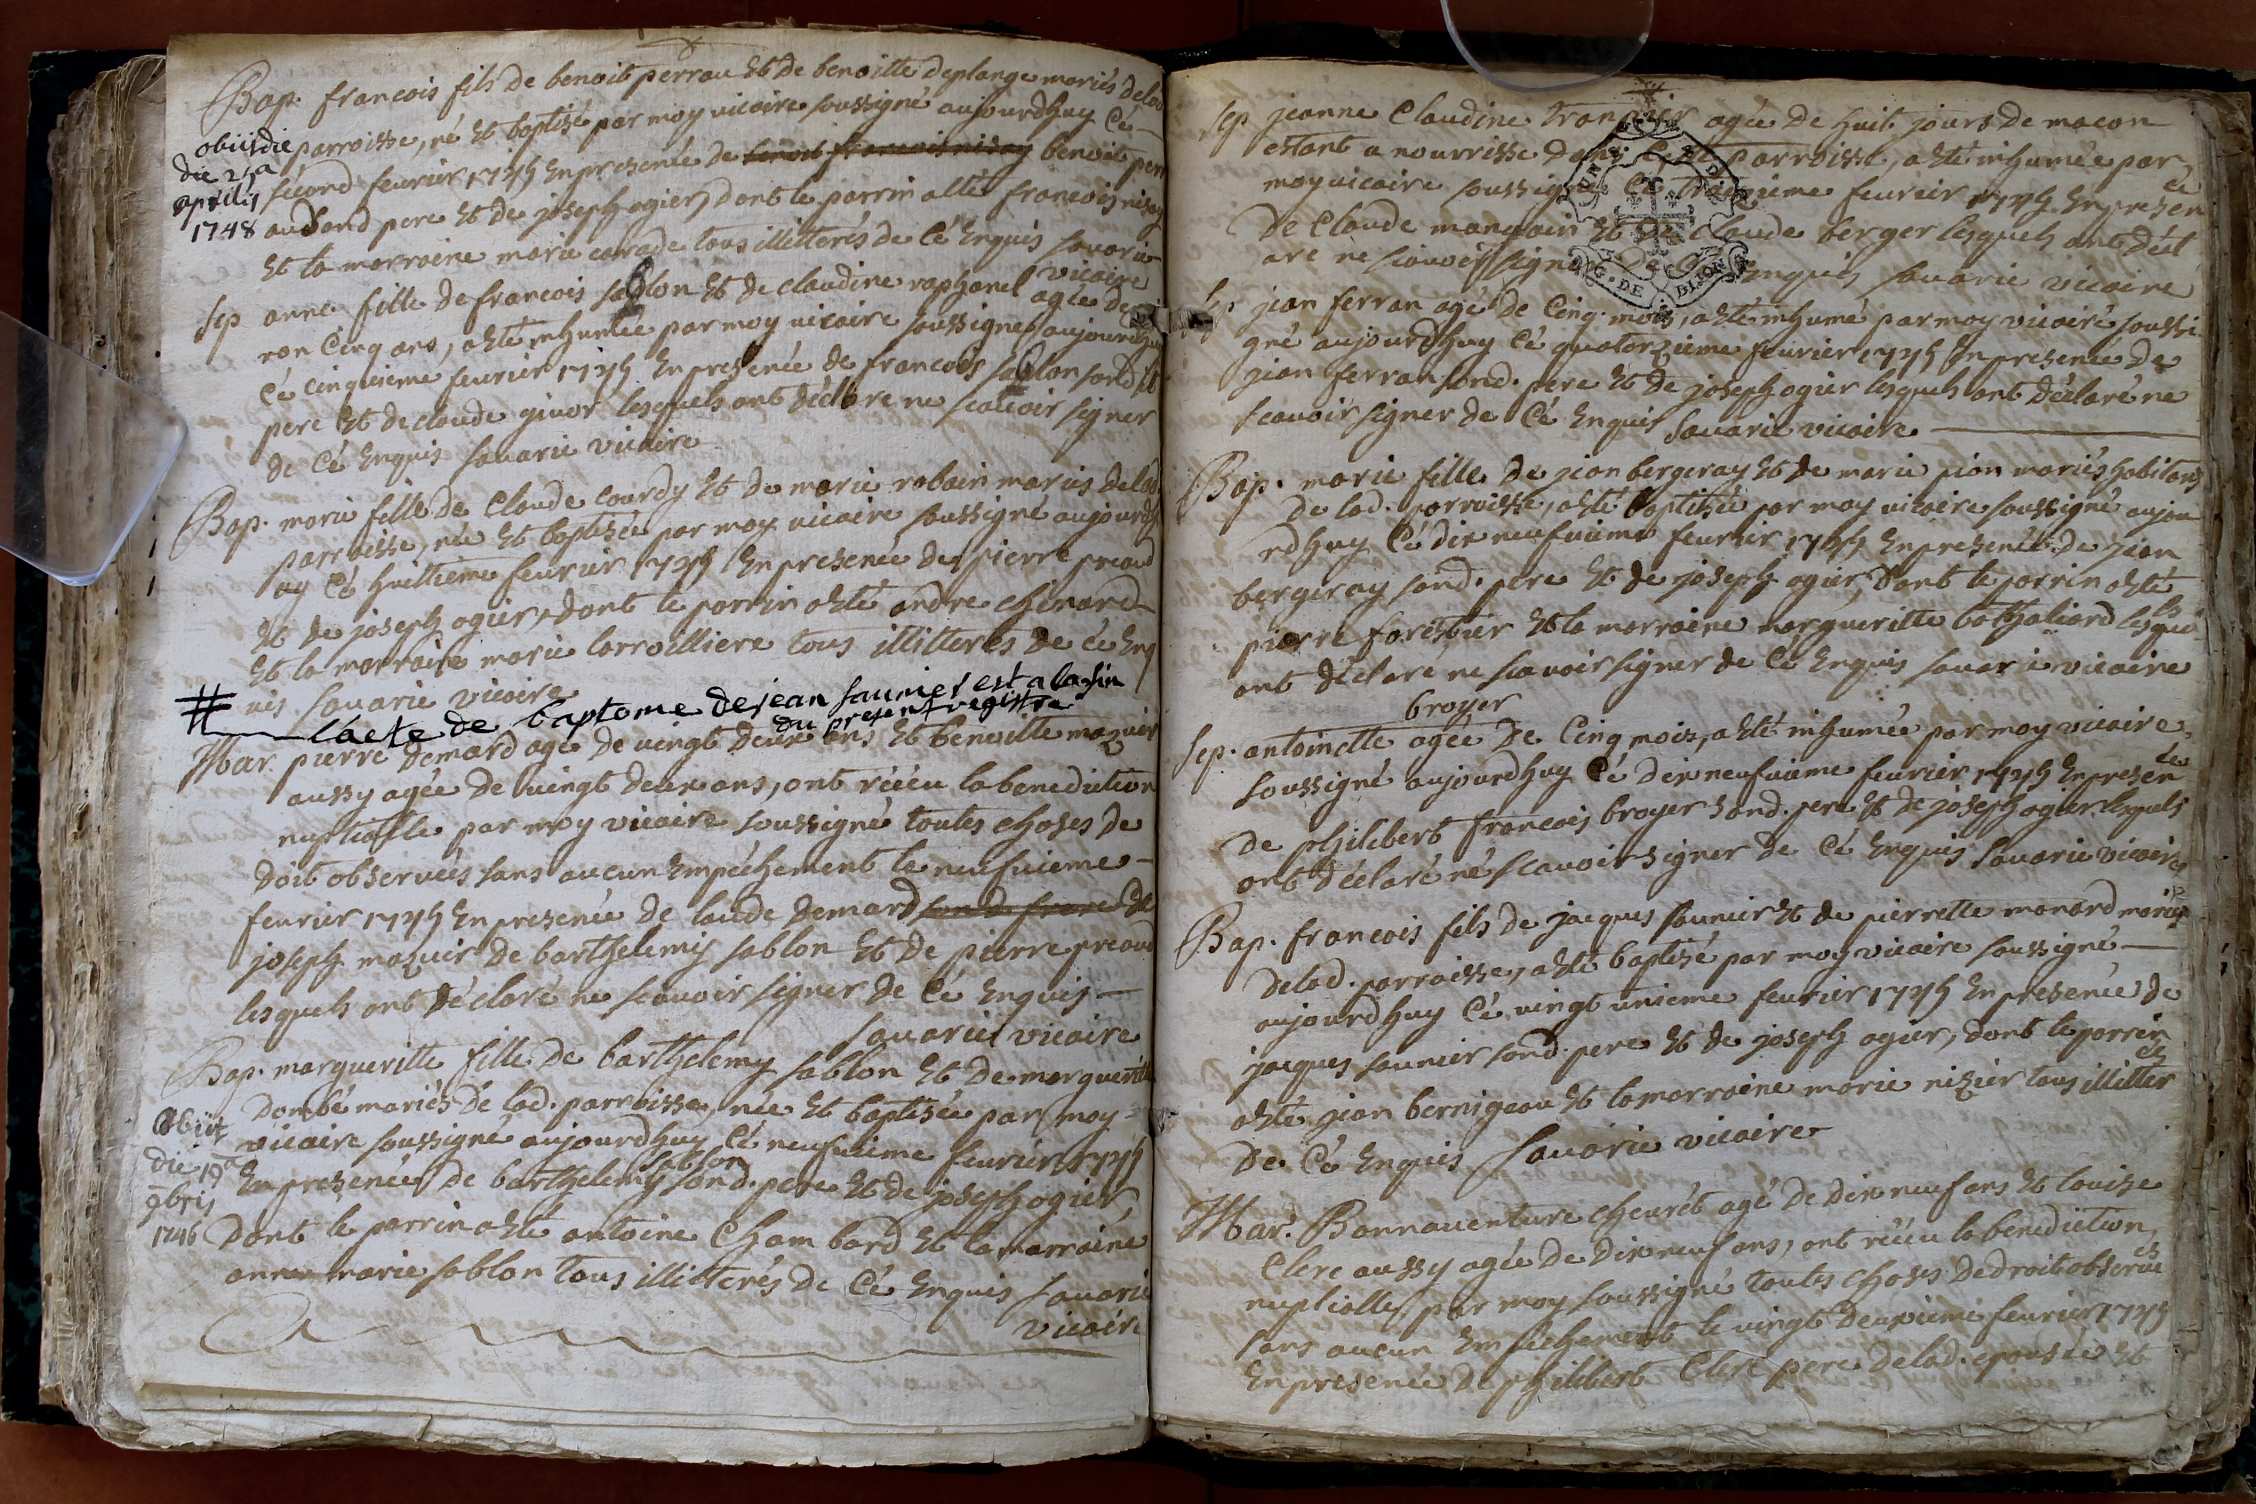 Bap. francois fils de benoit perrau et de benoitte deplange mariés de lad
parroisse, né et baptisé par moy vicaire soussigné aujourdhuy cé
sécond feurier 1745 en presence de benoit perr
aud sond pere et de joseph ogier, dont le parrin a esté francois nizey
et la marraine marie carade tous illitterés de cé enquis sauarie
vicaire
obiit die
die 25a
aprilis
1748
Sep anne fille de francois sablon et de claudine raphanel agée de
ron cinq ans, a esté inhumée par moy vicaire soussigné aujourdhuy
cé cinquieme feurier 1745 en presence de francois sablon sond
pere et de claude giuor lesquels ont déclare ne scauoir signer
de cé enquis sauarie vicaire
Bap. marie fille de claude courdy et de marie robain mariés de lad
parroisse, née et baptisée par moy vicaire soussigné aujourdh
uy cé huittieme feurier 1745 en presence de pierre preaud
et de joseph ogier, dont le parrin a esté andre chenard
et la marraine marie larroilliere tous illitterés de cé enq
uis sauarie vicaire
# l'acte de baptome de jean saunier est a la fin
du present registre
Mar. pierre demard agé de vingt deux ans et benoitte maquir
aussy agée de vingt deux ans, ont récéu la benediction
nuptialle par moy vicaire soussigné toutes choses de
doit obseruées sans aucun empéchement le neufuieme
feurier 1745 en presence de laude demard
joseph maquir de barthelemy sablon et de pierre preaud
lesquels ont déclaré ne scauoir signer de cé enquis
sauarie vicaire
Bap. margueritte fille de barthelemy sablon et de margueritte
dombé mariés de lad. parroisse, née et baptisée par moy
vicaire soussigné aujourdhuy cé neufuieme feurier 1745
en presence de barthelemy sablon sond. pere et de joseph ogier,
dont le parrin a esté antoine chambard et la marraine
anne marie sablon tous illitterés de cé enquis sauarie
vicaire
Obiit
die 19a
9bris
1746
Sep jeanne claudine agée de huit jours de macon
estant a nourrisse dans parroisse, a esté inhumée par
moy vicaire soussigné cé feurier 1745 en presen
ce
de claude mangoin et de claude berger lesquels ont décl
aré ne scauoir signer de cé enquis sauarie vicaire
Sep jean ferran agé de cinq mois, a esté inhumé par moy vicaire soussi
gné aujourdhuy cé quatorzieme feurier 1745 en presence de
jean ferran sond. pere et de joseph ogier lesquels ont déclaré ne
scauoir signer de cé enquis sauarie vicaire
Bap. marie fille de jean bergeray et de marie pion mariés habitans
de lad. parroisse, a esté baptisée par moy vicaire soussigné aujou
rdhuy cé dix neufuieme feurier 1745 en presence de jean
bergeray sond. pere et de joseph ogier, dont le parrin a esté
pierre forestier et la marraine margueritte bathaliard lesque
ls
ont déclaré ne scauoir signer de cé enquis sauarie vicaire
broyer
Sep. antoinette agée de cinq mois, a esté inhumée par moy vicaire
soussigné aujourdhuy cé dix neufuieme feurier 1745 en presen
ce
de philibert francois broyer sond. pere et de joseph ogier lesquels
ont déclaré né scauoir signer de cé enquis sauarie vicaire
Bap. francois fils de jacques saunier et de pierrette monard mariés
de lad. parroisse, a esté baptisé par moy vicaire soussigné
aujourdhuy cé vingt unieme feurier 1745 en presence de
jacques saunier sond. pere et de joseph ogier, dont le parrin
a esté jean bernigeau et la marraine marie nizier tous illitter
és
de cé enquis sauarie vicaire
Mar. Bonnauenture cheurét agé de dix neuf ans et louise
clerc aussy agée de dix neuf ans, ont récéu la benediction
nuptialle, par moy soussigné toutes choses de droit obserué
es
sans aucun empéchement le vingt deuxieme feurier 1745
en presence de philibert clerc pere de lad. epousée et